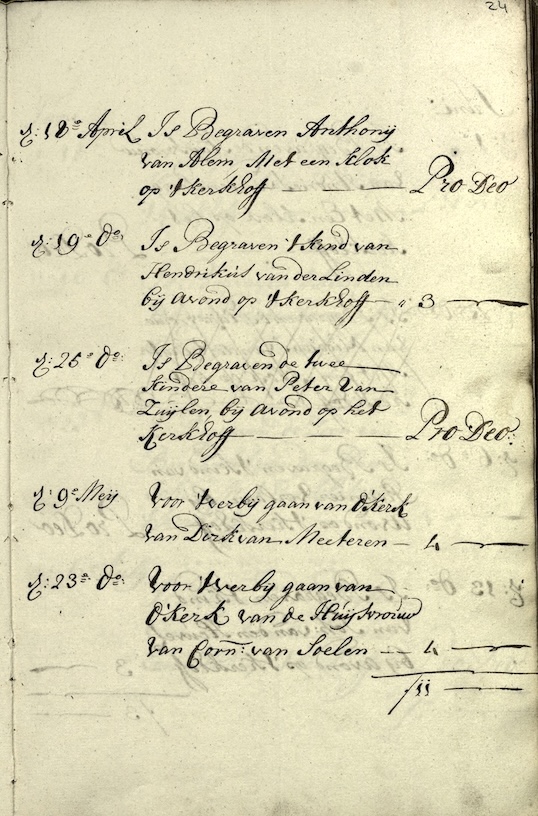 24
d: 18e April Is Begraven Anthonij
van Alem Met een klok
op 't kerkhoff — Pro Deo
d: 19e do: Is Begraven 't kind van
Hendrikus van der Linden
bij avond op 't kerkhoff — " 3 —
d: 25e do: Is Begraven de twee
kindere van Peter Van
Zuijlen, bij avond op het
Kerkhoff — Pro Deo:
d: 9e Meij Voor 't verbij gaan van d'kerk
van Dirk van Meeteren — 4 —
d: 23e do: Voor 't verbij gaan van
d'kerk van de Huijsvrouw
van Corn: van Soelen — 4 —
/11 —